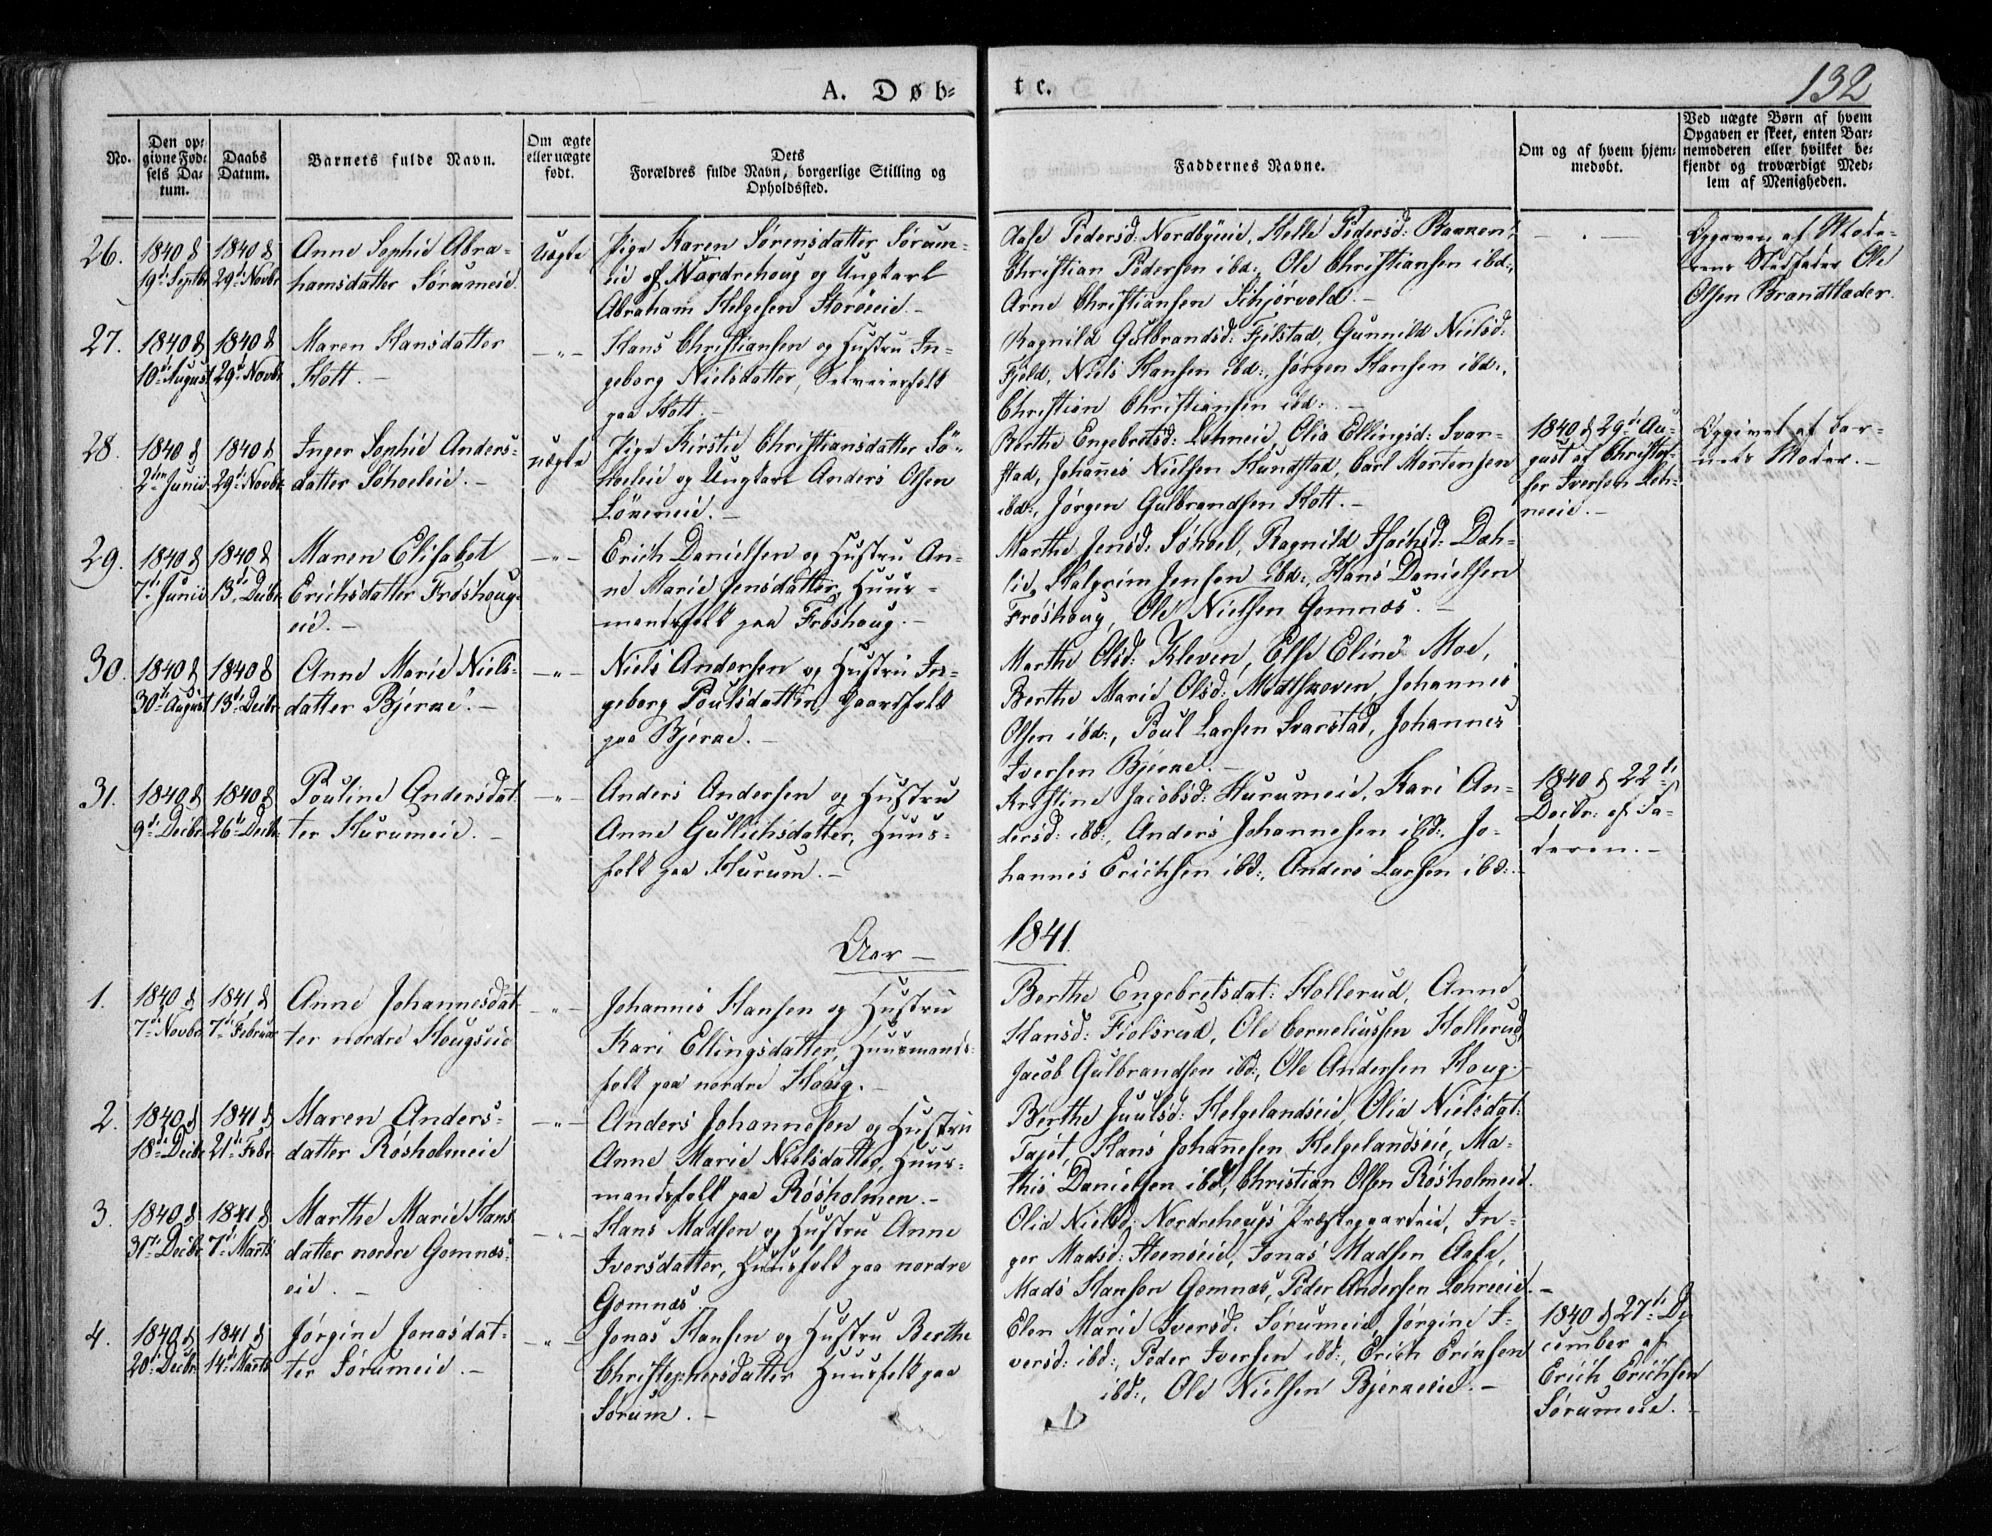 132
A. Døb-
te.
No.
Den op-
givne Fød-
sels Da-
tum.
Daabs
Datum.
Barnets fulde Navn.
Om ægte
eller uægte
født.
Dets
Forældres fulde Navn, borgerlige Stilling og
Opholdssted.
Faddernes Navne.
Om og af hvem hjem-
medøbt.
Ved uægte Børn af hvem
Opgaven er skeet, enten Bar-
nemoderen eller hvilket be-
kjendt og troværdigt Med-
lem af Menigheden.
26.
1840 d
19de Septbr
1840 d
29de Novbr
Anne Sophie Abra-
hamsdatter Sørumeie
Uægte
Pige Karen Sørensdatter Sørum-
eie af Nordrehoug og Ungkarl
Abraham Helgesen Storøeie. -
Aase Pedersd: Nordbyeie, Helle Pedersd:
Christian Pedersen ibd:, Ole Christiansen ibd:,
Arne Christiansen Schjørvold. -
Opgaven af Mode-
rens Stedfader Ole
Olsen Brandtlader.
27.
1840 d
10de August
1840 d
29de Novbr
Maren Hansdatter
Hott. -
- " -
Hans Christiansen og Hustru In-
geborg Nielsdatter, Selveierfolk
paa Hott. -
Ragnild Gulbrandsd: Fjelstad, Gunnild Nielsd:
Fjeld, Niels Hansen ibd:, Jørgen Hansen ibd:,
Christian Christiansen ibd:. -
28.
1840 d
2den Junii
1840 d
29de Novbr
Inger Sophie Anders-
datter Søhoeleie. -
uægte
Pige Kirstie Christiansdatter Sö-
hoeleie og Ungkarl Anders Olsen
Lönneeie. -
Berthe Engebretsd: Lehneie, Olia Ellingsd: Svar-
stad, Johannes Nielsen Hundstad, Carl Mortensen
ibd:, Jørgen Gulbrandsen Hott. -
1840 d 29de Au-
gust af Christof-
fer Iversen Leh-
neeie. -
Opgivet af Bar-
nets Moder. -
29.
1840 d
7de Junii
1840 d
13de Decbr
Maren Elisabet
Erichsdatter Frøshoug-
eie. -
- " -
Erich Danielsen og Hustru An-
ne Marie Jensdatter, Huus-
mandsfolk paa Frøshoug. -
Marthe Jensd: Søhoel, Ragnild Isachsd: Dæh-
lie, Halgrim Jensen ibd:, Hans Danielsen
Frøshoug, Ole Nielsen Gomnæs. -
30.
1840 d
30de August
1840 d
13de Decbr
Anne Marie Niels-
datter Bjerne. -
- " -
Niels Andersen og Hustru In-
geborg Poulsdatter, Gaardfolk
paa Bjerne. -
Marthe Olsd: Kleven, Else Eline Moe,
Berthe Marie Olsd: Modtskoven, Johannes
Olsen ibd:, Poul Larsen Svarstad, Johannes
Iversen Bjerne. -
31.
1840 d
9de Decbr
1840 d
26de Decbr
Pouline Andersdat-
ter Hurumeie. -
- " -
Anders Andersen og Hustru
Anne Gullichsdatter, Huus-
folk paa Hurum. -
Kristine Jacobsd: Hurumeie, Kari An-
dersd: ibd:, Anders Johannesen ibd:, Jo-
hannes Erichsen ibd:, Anders Larsen ibd:. -
1840 d 22de
Decbr: af Fa-
deren. -
Aar -
1841.
1.
1840 d
7de Novbr
1841 d
7de Februar
Anne Johannesdat-
ter nordre Hougseie
- " -
Johannes Hansen og Hustru
Kari Ellingsdatter, Huusmands-
folk paa nordre Houg. -
Berthe Engebretsdat: Hollerud, Anne
Hansd: Fiolsrud, Ole Corneliussen Hollerud,
Jacob Gulbrandsen ibd:, Ole Andersen Houg. -
2.
1840 d
18de Decbr
1841 d
21de Febr
Maren Anders-
datter Røsholmeie
- " -
Anders Johannesen og Hustru
Anne Marie Nielsdatter, Huus-
mandsfolk paa Røsholmen. -
Berthe Juulsd: Helgelandseie, Olia Nielsdat:
Tajet, Hans Johannesen Helgelandseie, Ma-
this Danielsen ibd:, Christian Olsen Røsholmeie.
3.
1840 d
31de Decbr
1841 d
7de Marts
Marthe Marie Hans-
datter nordre Gomnæs-
eie. -
- " -
Hans Madsen og Hustru Anne
Iversdatter, Huusfolk paa nordre
Gomnæs.
Olia Nielsd: Nordrehougs Præstegaardeie, In-
ger Madsd: Steenseie, Jonas Madsen Aase,
Mads Hansen Gomnæs, Peder Andersen Lehneeie. -
4.
1840 d
20de Decbr
1841 d
14de Marts
Jørgine Jonasdat-
ter Sørumeie. -
- " -
Jonas Hansen og Hustru Berthe
Christephersdatter Huusfolk paa
Sørum. -
Elen Marie Iversd: Sørumeie, Jørgine I-
versd: ibd:, Peder Iversen ibd:, Erich Eriksen
ibd:, Ole Nielsen Bjerneeie. -
1840 d 27de De-
cember af
Erich Erichsen
Sørumeie. -